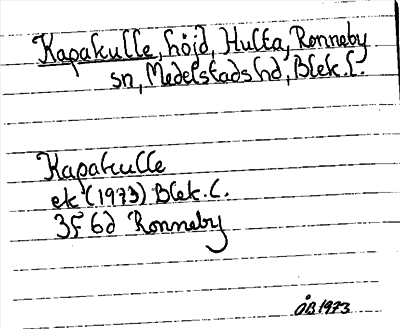 Kapakulle, höjd, Hulta, Ronneby
sn, Medelstads hd, Blek. l.
Kapakulle
ek (1973) Blek. l.
3F 6d Ronneby
ÅB 1973